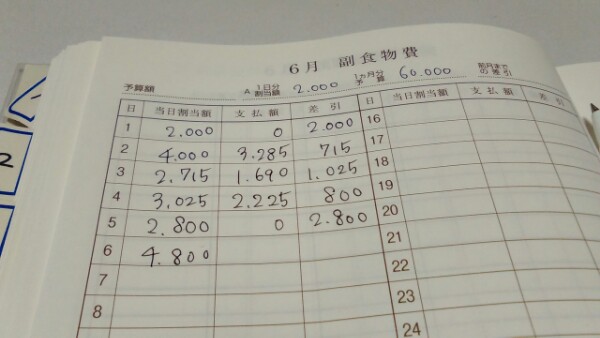 6月 副食物費
予算額 A 1日分割当額 2.000 1ヵ月分予算 60.000 前月までの差引
日 当日割当額 支払額 差引 日 当日割当額 支払額 差引
1 2.000 0 2.000 16
2 4.000 3.285 715 17
3 2.715 1.690 1.025 18
4 3.025 2.225 800 19
5 2.800 0 2.800 20
6 4.800 21
7 22
8 23
24
2